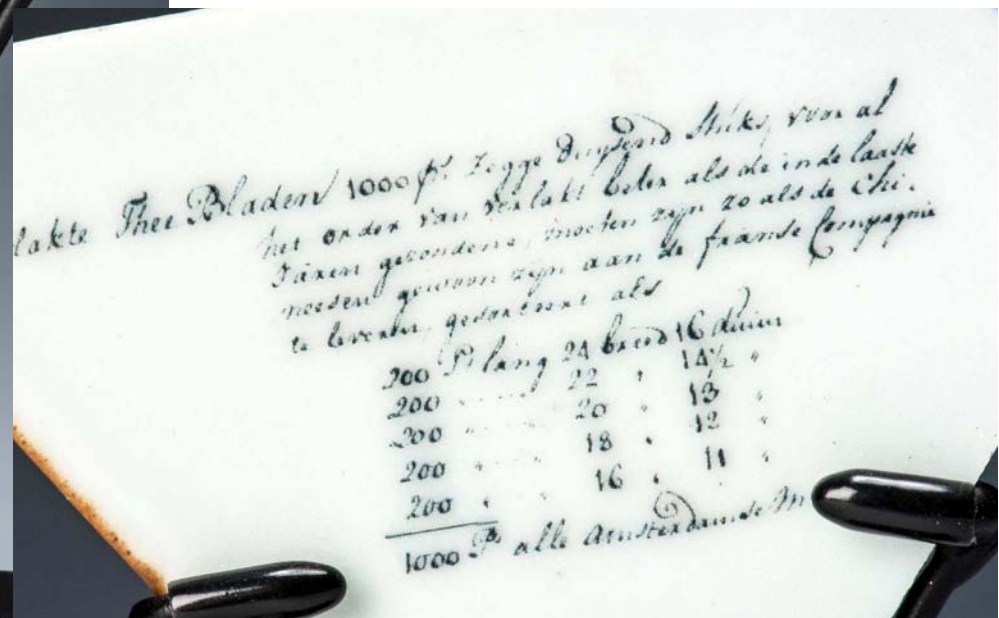 lakte Thee Bladen 1000 ps zegge Duysend Stuks, voor al
het order van verlakt beter als de in de laaste
Jaren gezondene, moeten zyn zo als de Chi-
neesen gewoon zyn aan de franse Compagnie
te leveren, gesorteert als
200 Ps lang 24 breed 16 duim
200 " " 22 " 14½ "
200 " " 20 " 13 "
200 " " 18 " 12 "
200 " " 16 " 11 "
1000 Ps alle Amsterdamse M